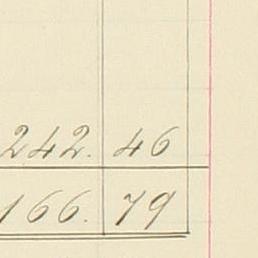 242. 46
166. 79